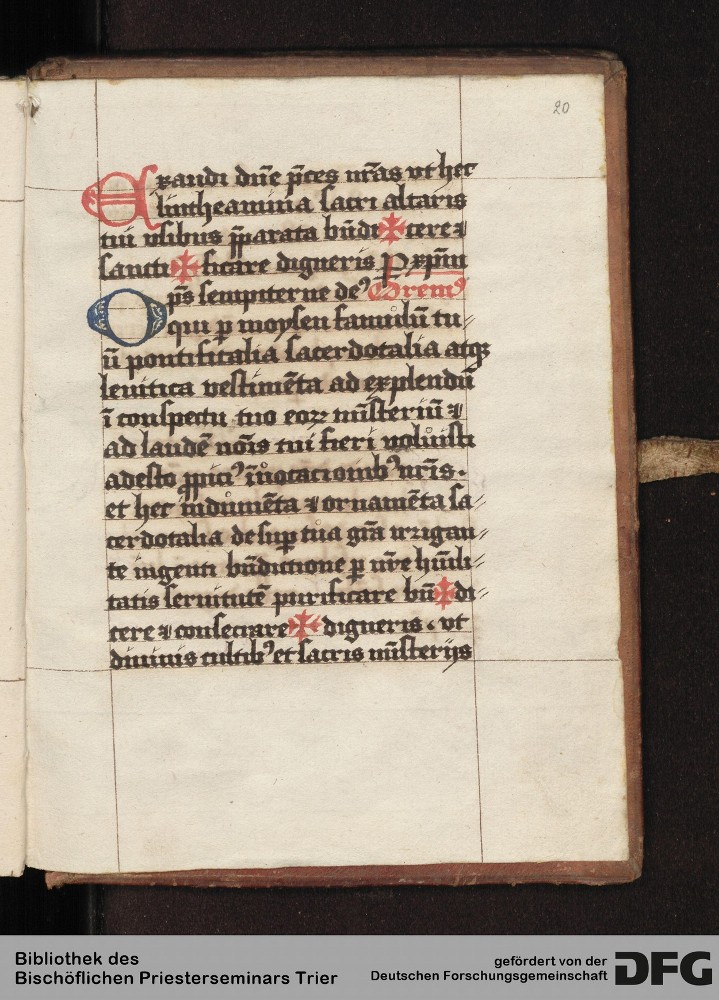 20
Exandi dn̄e p̄ces nr̄as vt hec
lintheamina sacri altaris
tui vsibus p̄parata bn̄di✠cere ⁊
sancti✠ficare digneris P xp̄m
Orem⁹
Op̄s sempiterne de⁹
qui p moysen famulū tu⸗
ū pontificalia sacerdotalia atqꝫ
leuitica vestimēta ad explendū
ī conspectu tuo eoꝝ mīsteriū ⁊
ad laudē nōis tui fieri voluisti
adesto p̄pici⁹ īuocacionib⁹ nr̄is.
et hec indumēta ⁊ ornamēta sa⸗
cerdotalia desup tua gr̄a irrigan⸗
te ingenti bn̄dictione p nr̄e hūili⸗
tatis seruitutē purificare bn̄✠di⸗
cere ⁊ consecrare✠ digneris. vt
diuinis cultib⁹ et sacris mīsterijs
Bibliothek des
Bischöflichen Priesterseminars Trier
gefördert von der
Deutschen Forschungsgemeinschaft
DFG